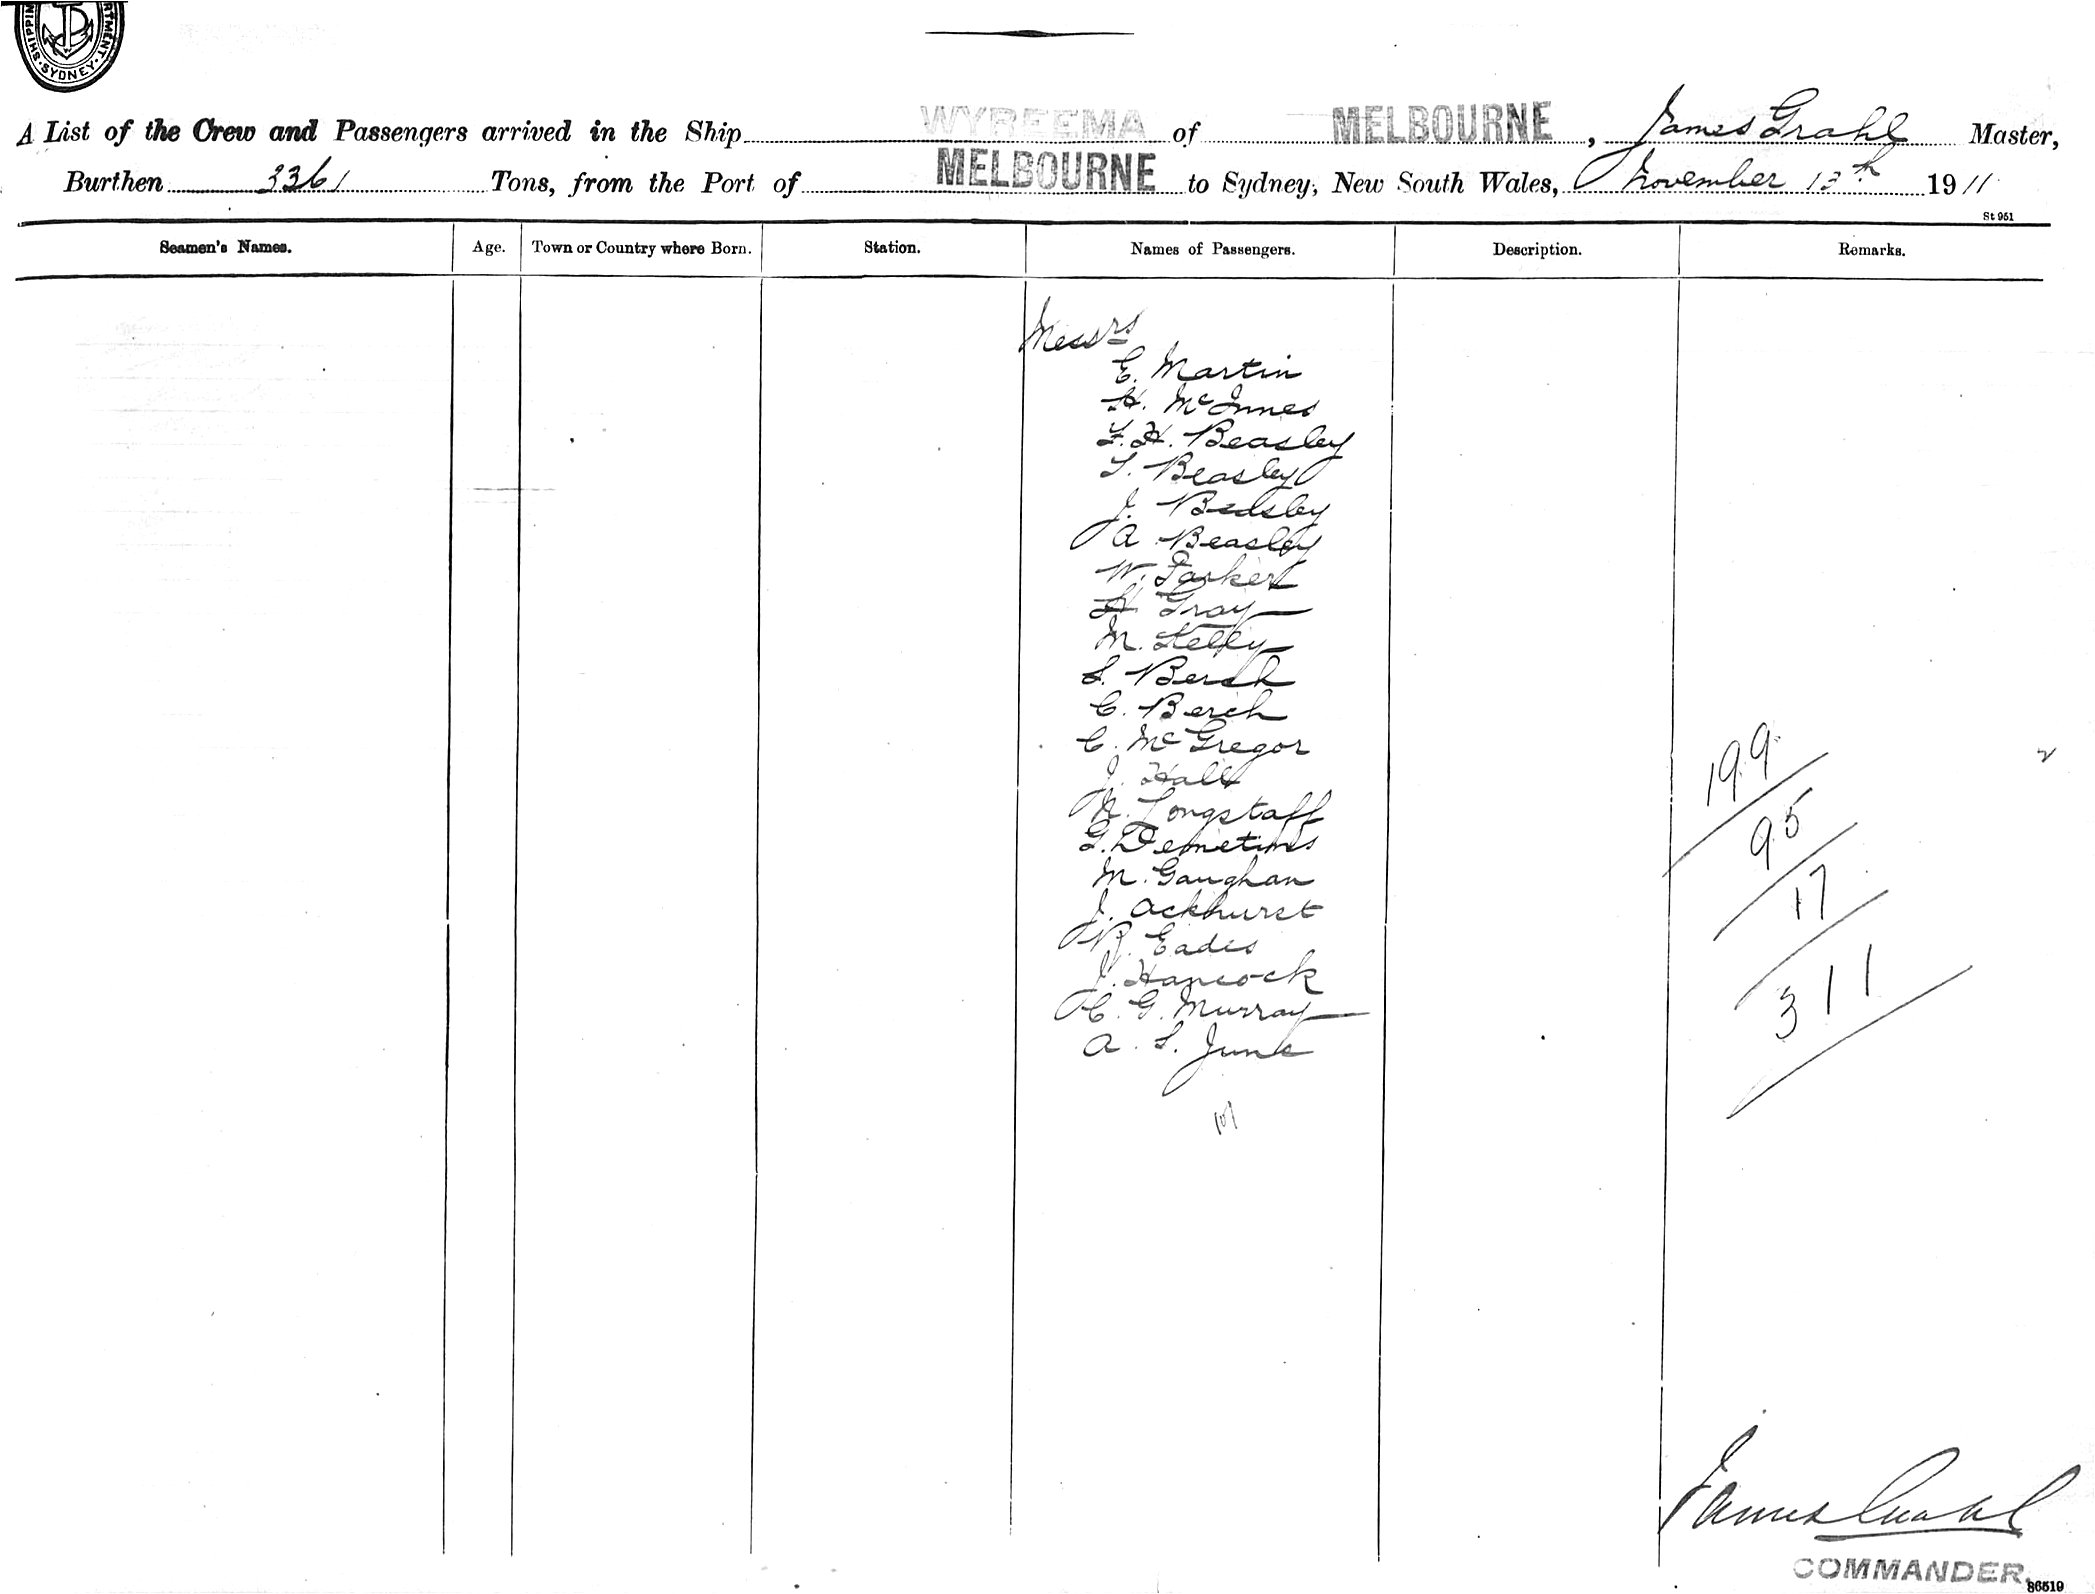 SHIPPIN RTMENT SYDNEY
A List of the Crew and Passengers arrived in the Ship WYREEMA of MELBOURNE, James Grahl Master,
Burthen 3361 Tons, from the Port of MELBOURNE to Sydney, New South Wales, November 13th 1911
St 951
Seamen's Names. Age. Town or Country where Born. Station. Names of Passengers. Description. Remarks.
Messrs
E. Martin
H. McInnes
F. H. Beasley
T. Beasley
J. Beasley
A Beasley
W. Parker
H Gray
M. Kelly
S. Berch
C. Berch
C. McGregor
J. Hall
N. Longstaff
G. Demetius
M. Gaughan
J. Ackhurst
R. Eadis
J. Hancock
C. G. Murray
A. S. June
199
95
17
311
James Grahl
COMMANDER.
86519